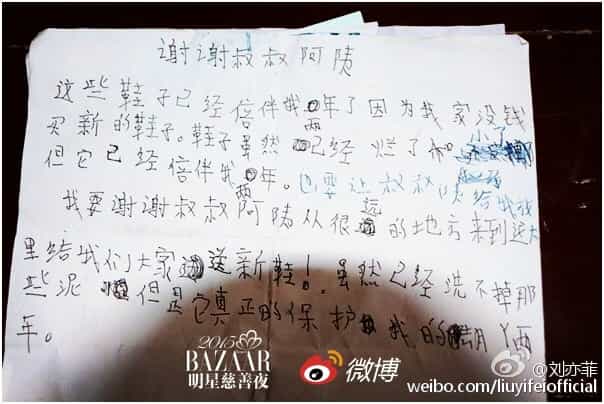 谢谢叔叔阿姨
这些鞋子已经倍伴我年了因为我家没钱
买新的鞋子。鞋子虽然已经烂了和小了
但它已经倍伴我两年。也要让叔叔给我找
我要谢谢叔叔阿姨从很远的地方来到这大
里给我们大家送新鞋!虽然已经洗不掉那
些泥 但是它真正的保护我的脚丫两
年。
2015
BAZAAR
明星慈善夜
微博
@刘亦菲
weibo.com/liuyifeiofficial